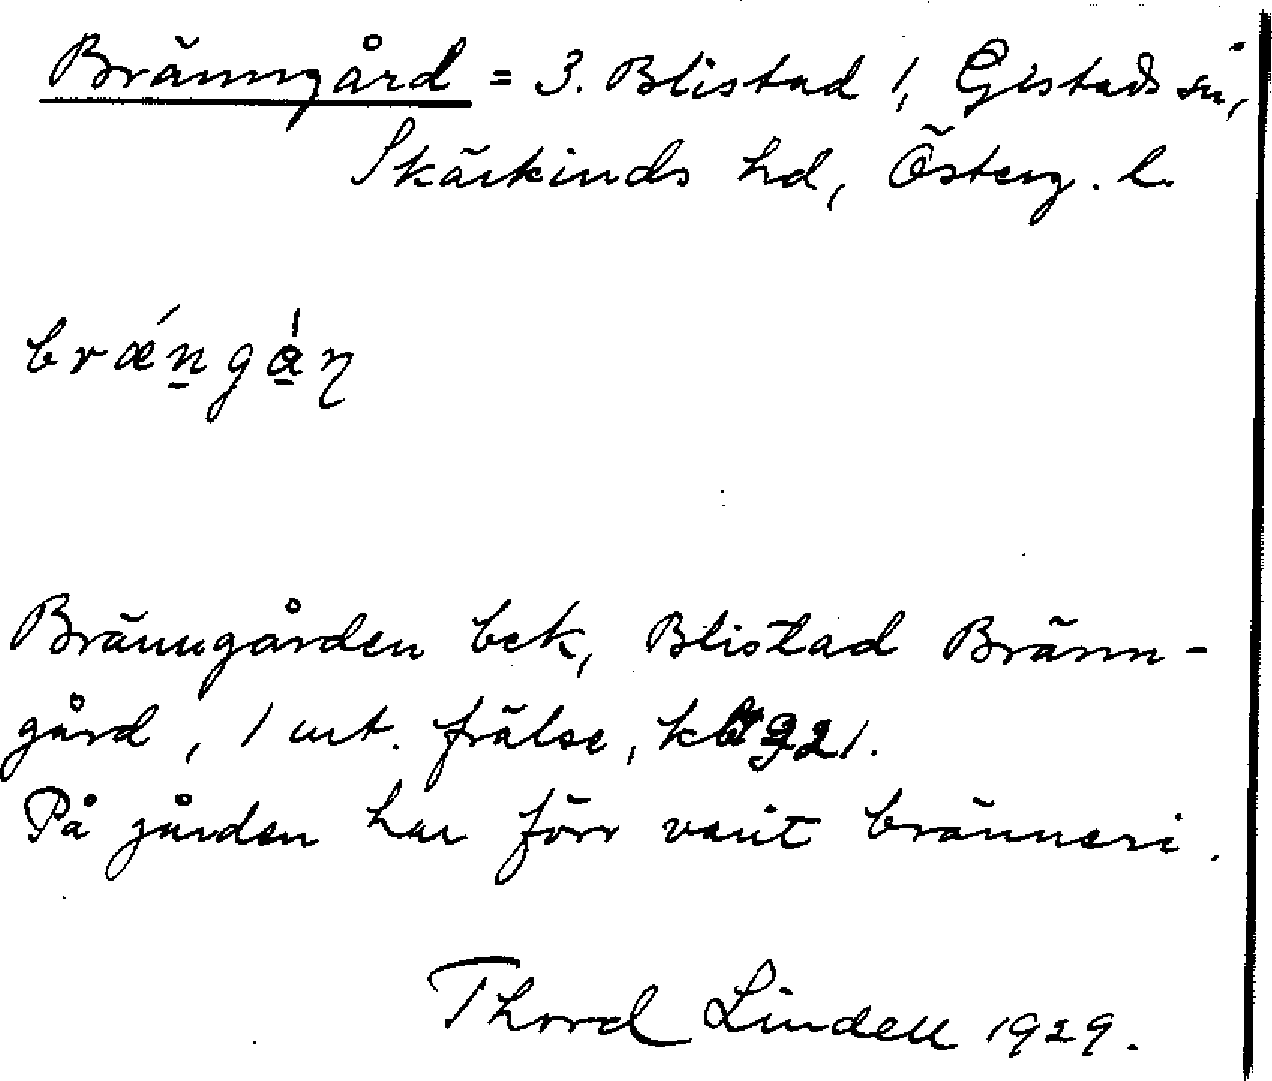 Bränngård = 3. Blistad 1, Gistads sn,
Skärkinds hd, Österg. l.
brǽn̲gǻ̲ɳ
Bränngården bek, Blistad Bränn-
gård, 1 mt. frälse, kbl 221.
På gården har förr varit bränneri.
Thord Lindell 1929.